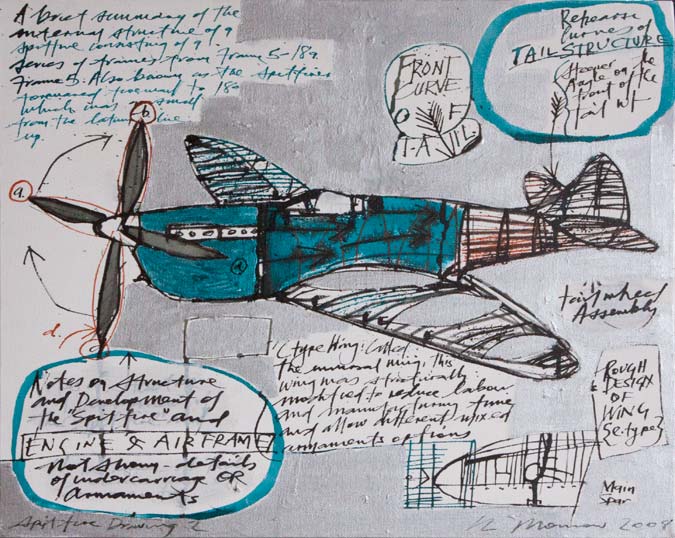 A brief summary of the
internal structure of a
spitfire consisting of 91.
series of frames from Frame 5-18a.
Frame 5. Also known as the spitfires
forward to 18a
which was small
from the
up.
b.
a.
a
d.
c
FRONT
CURVE
OF
TAIL
Rehearse
curves of
TAIL STRUCTURE
steeper
Angle on the
front of the
tail
tail wheel
Assembly
'C type Wing: Called
the universal wing, this
wing was structurally
modified to reduce labour
and manufacturing time
and allow different mixed
armaments options
ROUGH
DESIGN
OF
WING
[C.type]
Main
Spar
Notes on Structure
and Development of
the "Spitfire" and
ENGINE & AIRFRAME
not shown - details
of undercarriage OR
Armaments
Spitfire Drawing 2
2008